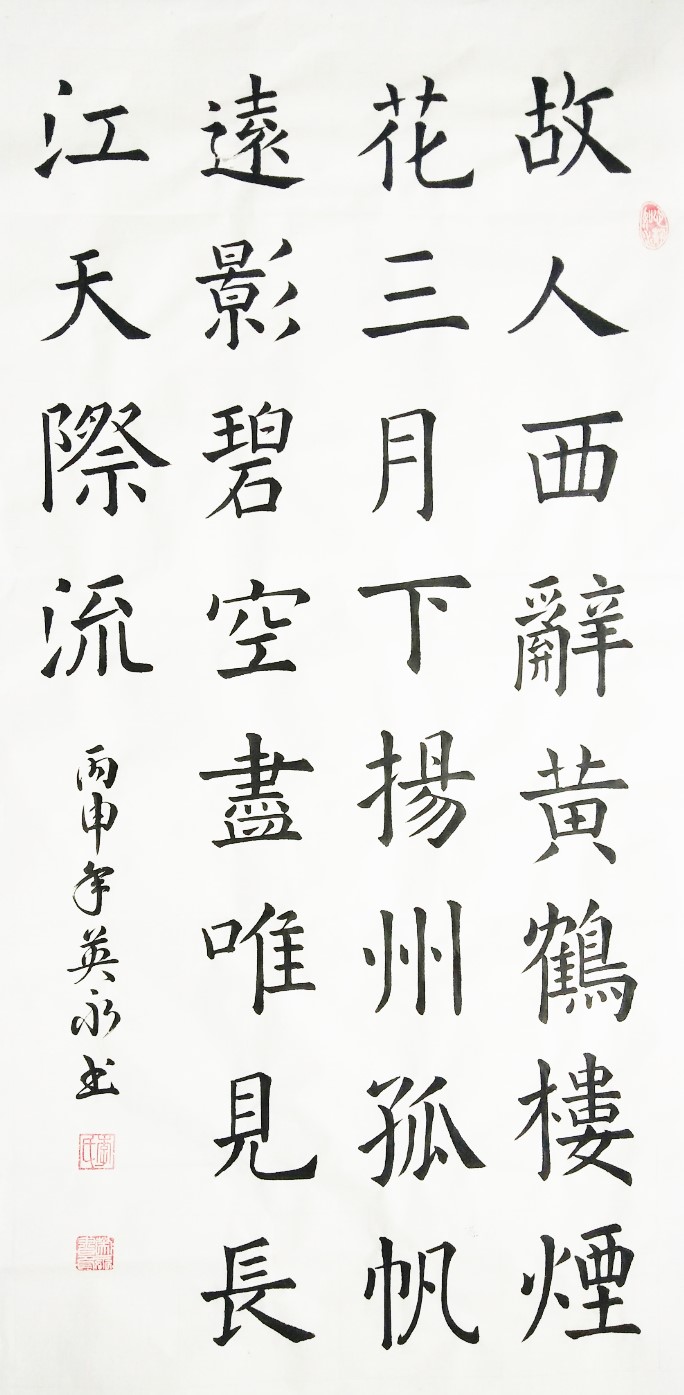 故人西辭黄鶴樓煙
花三月下揚州孤帆
遠影碧空盡唯見長
江天際流
丙申年英永书